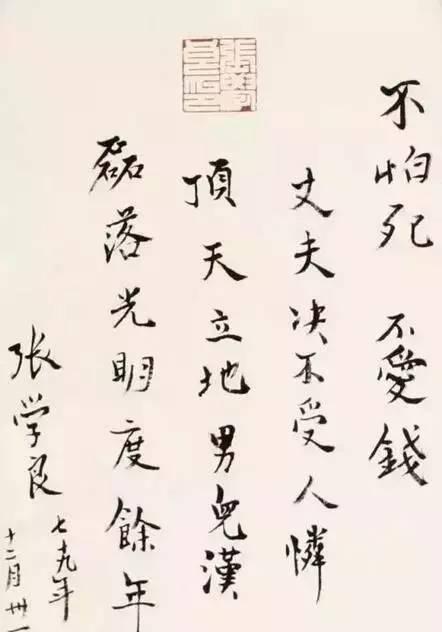 不怕死 不愛錢
丈夫决不受人憐
頂天立地男兒漢
磊落光明度餘年
张学良
七九年
十二月卅一